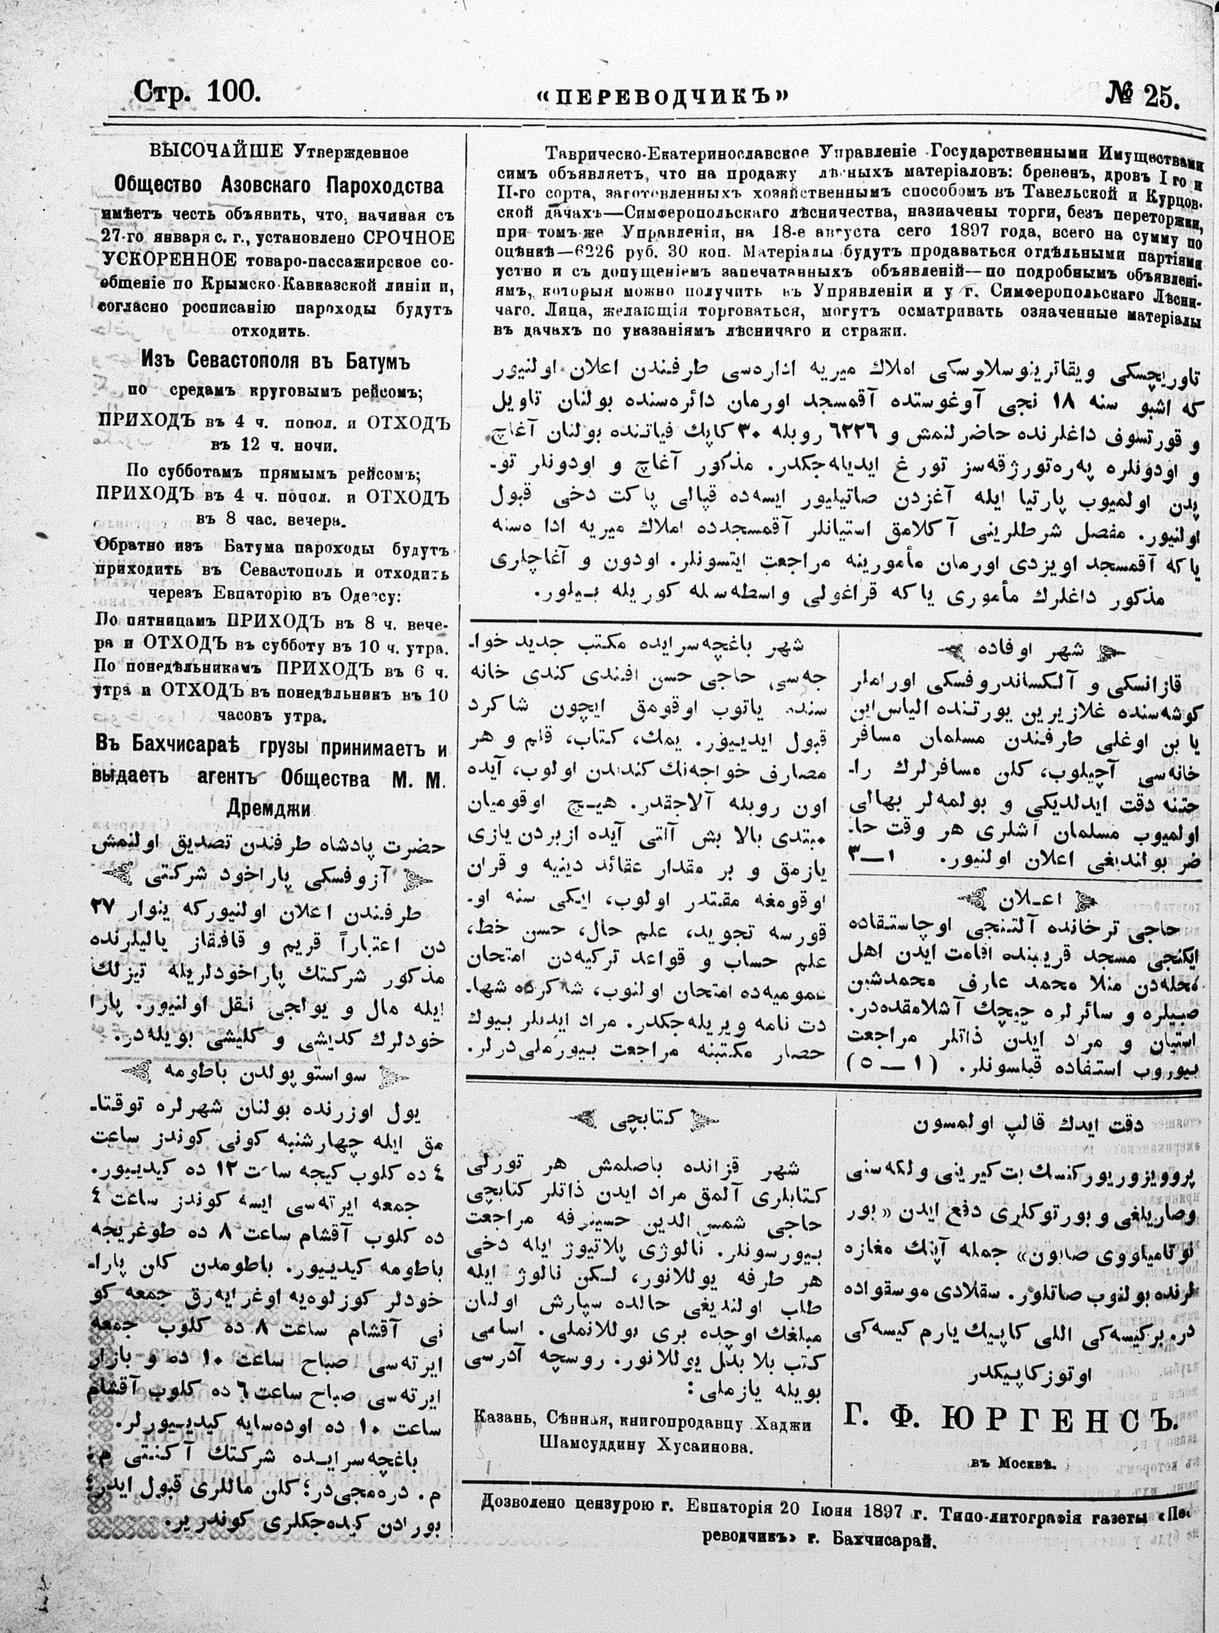 Стр. 100.
«ПЕРЕВОДЧИКЪ»
№ 25.
ВЫСОЧАЙШЕ Утвержденное
Общество Азовскаго Пароходства
имѣетъ честь объявить, что, начиная съ
27-го января с. г., установлено СРОЧНОЕ
УСКОРЕННОЕ товаро-пассажирское со-
общеніе по Крымско-Кавказской линіи и,
согласно росписанію пароходы будутъ
отходить.
Изъ Севастополя въ Батумъ
по средамъ круговымъ рейсомъ;
ПРИХОДЪ въ 4 ч. попол. и ОТХОДЪ
въ 12 ч. ночи.
По субботамъ прямымъ рейсомъ;
ПРИХОДЪ въ 4 ч. попол. и ОТХОДЪ
въ 8 час. вечера.
Обратно изъ Батума пароходы будутъ
приходить въ Севастополь и отходить
черезъ Евпаторію въ Одессу:
По пятницамъ ПРИХОДЪ въ 8 ч. вече-
ра и ОТХОДЪ въ субботу въ 10 ч. утра.
По понедѣльникамъ ПРИХОДЪ въ 6 ч.
утра и ОТХОДЪ въ понедѣльникъ въ 10
часовъ утра.
Въ Бахчисараѣ грузы принимаетъ и
выдаетъ агентъ Общества М. М.
Дремджи
حضرت پادشاه طرفندن تصديق اولنمش
آزوفسكی پاراخود شركتی
طرفندن اعلان اولنيوركه ينوار ٢٧
دن اعتباراً قريم و قافقاز ياليلرنده
مذكور شركتك پاراخودلريله تيزلك
ايله مال و يولجی نقل اولنيور. پارا
خودلرك كديشی و كليشی بويله در.
سواستوپولدن باطومه
يول اوزرنده بولنان شهرلره توقتا-
مق ايله چهارشنبه كونی كوندز ساعت
٤ ده كلوب كيجه ساعت ١٢ ده كيديیور.
جمعه ايرته‌سی ايسه كوندز ساعت ٤
ده كلوب آقشام ساعت ٨ ده طوغريجه
باطومه كيديیور. باطومدن كلن پارا-
خودلر كوزلوه‌يه اوغرايه‌رق جمعه كو
نی آقشام ساعت ٨ ده كلوب جمعه
ايرته‌سی صباح ساعت ١٠ ده و بازار
ايرته‌سی صباح ساعت ٦ ده كلوب آقشام
ساعت ١٠ ده اوده‌سايه كيديیورلر.
باغچه‌سرايده شركتك آكنتی م.
م. دره‌مجی در؛ كلن ماللری قبول ايدر؛
بورادن كيده‌جكلری كوندرير.
Таврическо-Екатеринославское Управленіе Государственными Имуществами
симъ объявляетъ, что на продажу лѣсныхъ матеріаловъ: бревенъ, дровъ I го и
II-го сорта, заготовленныхъ хозяйственнымъ способомъ въ Тавельской и Курцов-
ской дачахъ—Симферопольскаго лѣсничества, назначены торги, безъ переторжки,
при томъ-же Управленіи, на 18-е августа сего 1897 года, всего на сумму по
оцѣнкѣ—6226 руб. 30 коп. Матеріалы будутъ продаваться отдѣльными партіями
устно и съ допущеніемъ запечатанныхъ объявленій—по подробнымъ объявлені-
ямъ, которыя можно получить въ Управленіи и у г. Симферопольскаго Лѣсни-
чаго. Лица, желающія торговаться, могутъ осматривать означенные матеріалы
въ дачахъ по указаніямъ лѣсничаго и стражи.
تاوريچسكی ويقاترينوسلاوسكی املاك ميريه اداره‌سی طرفندن اعلان اولنيور
كه اشبو سنه ١٨ نجی آوغوستده آقمسجد اورمان دائره‌سنده بولنان تاويل
و قورتسوف داغلرنده حاضرلنمش و ٦٢٢٦ روبله ٣٠ كاپك فياتنده بولنان آغاچ
و اودونلره په‌ره‌تورژقه‌سز تورغ ايديله‌جكدر. مذكور آغاچ و اودونلر تو-
پدن اولميوب پارتيا ايله آغزدن صاتيليور ايسه‌ده قپالی پاكت دخی قبول
اولنيور. مفصل شرطلرينی آكلامق استيانلر آقمسجدده املاك ميريه اداره‌سنه
ياكه آقمسجد اويزدی اورمان مأمورينه مراجعت ايتسونلر. اودون و آغاچلری
مذكور داغلرك مأموری ياكه قراغولی واسطه‌سله كوريله بيلور.
شهر باغچه‌سرايده مكتب جديد خوا-
جه‌سی حاجی حسن افندی كندی خانه
سنده ياتوب اوقومق ايچون شاكرد
قبول ايديیور. يمك، كتاب، قلم و هر
مصارف خواجه‌نك كندندن اولوب، آيده
اون روبله آلاجقدر. هيچ اوقوميان
مبتدی بالا بش آلتی آيده ازبردن يازی
يازمق و بر مقدار عقائد دينيه و قران
اوقومغه مقتدر اولوب، ايكی سنه او-
قورسه تجويد، علم حال، حسن خط،
علم حساب و قواعد تركيه‌دن امتحان
عموميه‌ده امتحان اولنوب، شاكرده شها-
دت نامه ويريله‌جكدر. مراد ايدنلر بيوك
حصار مكتبنه مراجعت بيورملی درلر.
شهر اوفاده
قازانسكی و آلكساندروفسكی اورامار
كوشه‌سنده غلازيرين يورتنده الياس ابن
يا بن اوغلی طرفندن مسلمان مسافر
خانه‌سی آچيلوب، كلن مسافرلرك را-
حتنه دقت ايدلديكی و بولمه‌لر بهالی
اولميوب مسلمان آشلری هر وقت حا-
ضر بولنديغی اعلان اولنيور. ١—٣
اعلان
حاجی ترخانده آلتنجی اوچاستقاده
ايكنجی مسجد قربنده اقامت ايدن اهل
محله‌دن منلا محمد عارف محمدشين
صبيلره و سائرلره چيچك آشلامقده‌در.
استيان و مراد ايدن ذاتلر مراجعت
بيوروب استفاده قيلسونلر. (١—٥)
كتابچی
شهر قزانده باصلمش هر تورلی
كتابلری آلمق مراد ايدن ذاتلر كتابچی
حاجی شمس الدين حسينوفه مراجعت
بيورسونلر. نالوژی پلاتيوژ ايله دخی
هر طرفه يوللانور، لكن نالوژ ايله
طلب اولنديغی حالده سپارش اولنان
مبلغك اوچده بری يوللانملی. اسامی
كتب بلا بدل يوللانور. روسچه آدرسی
بويله يازملی:
Казань, Сѣнная, книгопродавцу Хаджи
Шамсуддину Хусаинова.
دقت ايدك قالپ اولمسون
پروويزور يوركنسك بت كيرينی و لكه‌سنی
وصاريلغی و بورتوكلری دفع ايدن «بور
نوتاميلووی صابون» جمله آپتك مغازه
لرنده بولنوب صاتلور. سقلادی موسقواده
در. بركيسه‌كی اللی كاپيك يارم كيسه‌كی
اوتوز كاپيكدر
Г. Ф. ЮРГЕНСЪ.
въ Москвѣ.
Дозволено цензурою г. Евпаторія 20 Іюня 1897 г. Типо-литографія газеты «Пе-
реводчикъ» г. Бахчисарай.